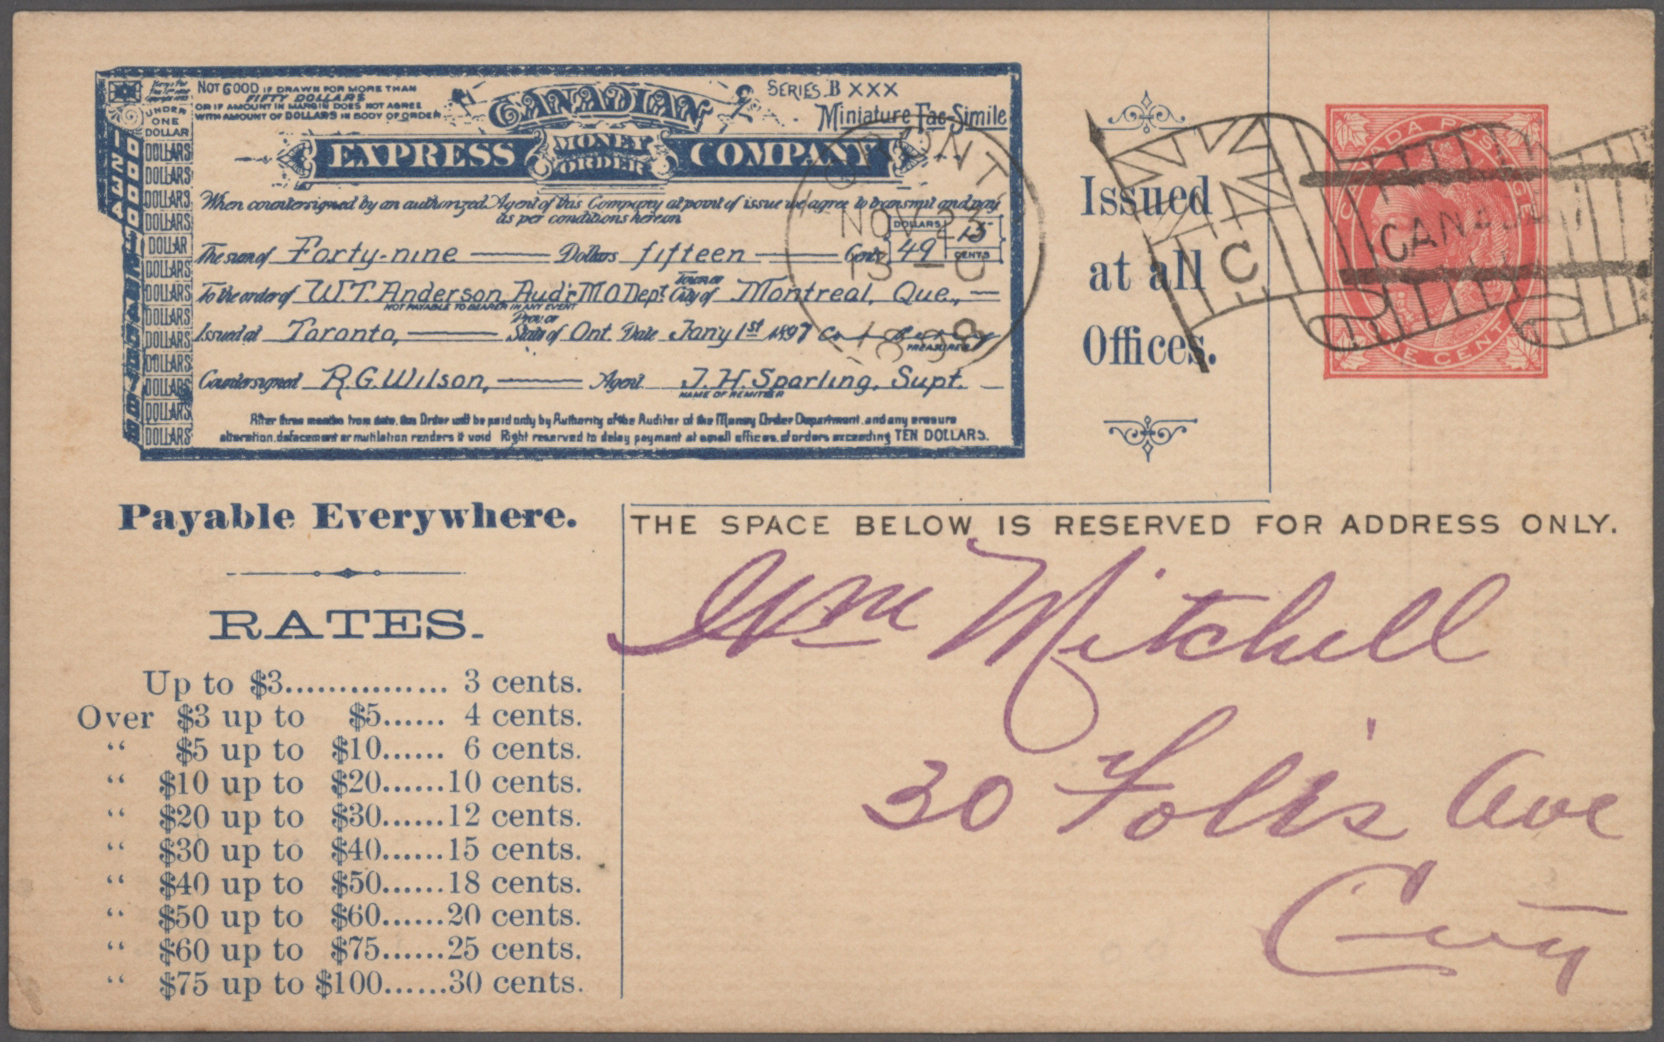 NOT GOOD IF DRAWN FOR MORE THAN
FIFTY DOLLARS
OR IF AMOUNT IN MARGIN DOES NOT AGREE
WITH AMOUNT OF DOLLARS IN BODY OF ORDER
SERIES. B XXX
Miniature Fac-Simile
CANADIAN
EXPRESS MONEY ORDER COMPANY
When countersigned by an authorized Agent of this Company at point of issue we agree to transmit and pay
as per conditions hereon
DOLLARS 49 15 CENTS
The sum of Forty-nine Dollars fifteen Cents
To the order of W.T. Anderson Aud'r M O Dept Town or City of Montreal, Que.,
NOT PAYABLE TO BEARER IN ANY EVENT
Issued at Toronto, Prov or State of Ont. Date Jan'y 1st 1897
TREASURER
Countersigned R.G. Wilson, Agent J. H. Sparling, Supt.
NAME OF REMITTER
After three months from date, this Order will be paid only by Authority of the Auditor of the Money Order Department, and any erasure
alteration, defacement or mutilation renders it void Right reserved to delay payment at small offices, of orders exceeding TEN DOLLARS.
UNDER
ONE
DOLLAR
DOLLARS
DOLLARS
DOLLARS
DOLLARS
DOLLAR
DOLLARS
DOLLARS
DOLLARS
DOLLARS
DOLLARS
DOLLARS
DOLLARS
DOLLARS
TORONTO
NOV 23
13 - 0
1898
Issued
at all
Offices.
C
CANADA
CANADA POSTAGE
ONE CENT
Payable Everywhere.
RATES.
Up to $3................ 3 cents.
Over $3 up to $5...... 4 cents.
“ $5 up to $10...... 6 cents.
“ $10 up to $20......10 cents.
“ $20 up to $30......12 cents.
“ $30 up to $40......15 cents.
“ $40 up to $50......18 cents.
“ $50 up to $60......20 cents.
“ $60 up to $75......25 cents.
“ $75 up to $100......30 cents.
THE SPACE BELOW IS RESERVED FOR ADDRESS ONLY.
Wm Mitchell
30 Follis Ave
City